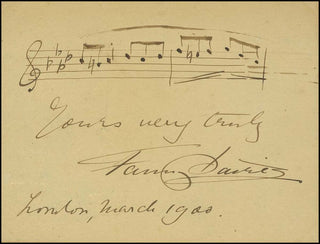 Yours very truly
Fanny Davies
London, March 1900.